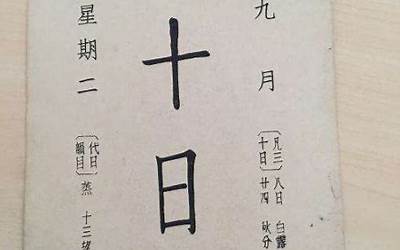 九月
〔凡三十日〕
八日 白露
廿四 秋分
十日
星期二
〔代日韻目〕蒸
十三